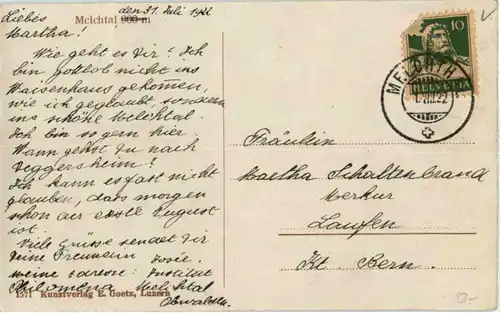 den 31. Juli 1922
Liebes
Melchtal 900 m
Martha!
Wie geht es Dir? Ich
bin gottlob nicht ins
Waisenhaus gekommen,
wie ich geglaubt, sondern
ins schöne Melchtal.
Ich bin so gern hier.
Wann gehst du nach
Deggersheim?
Ich kann es fast nicht
glauben, dass morgen
schon der erste August
ist.
Viele Grüsse sendet Dir
Deine Freundin Josie.
meine adresse: Institut
Philomena Melchtal
Obwalden.
1571 Kunstverlag E. Goetz, Luzern
10
HELVETIA
MELCHTH
Fräulein
Martha Schaltenbrand
Merkur
Laufen
Kt Bern.